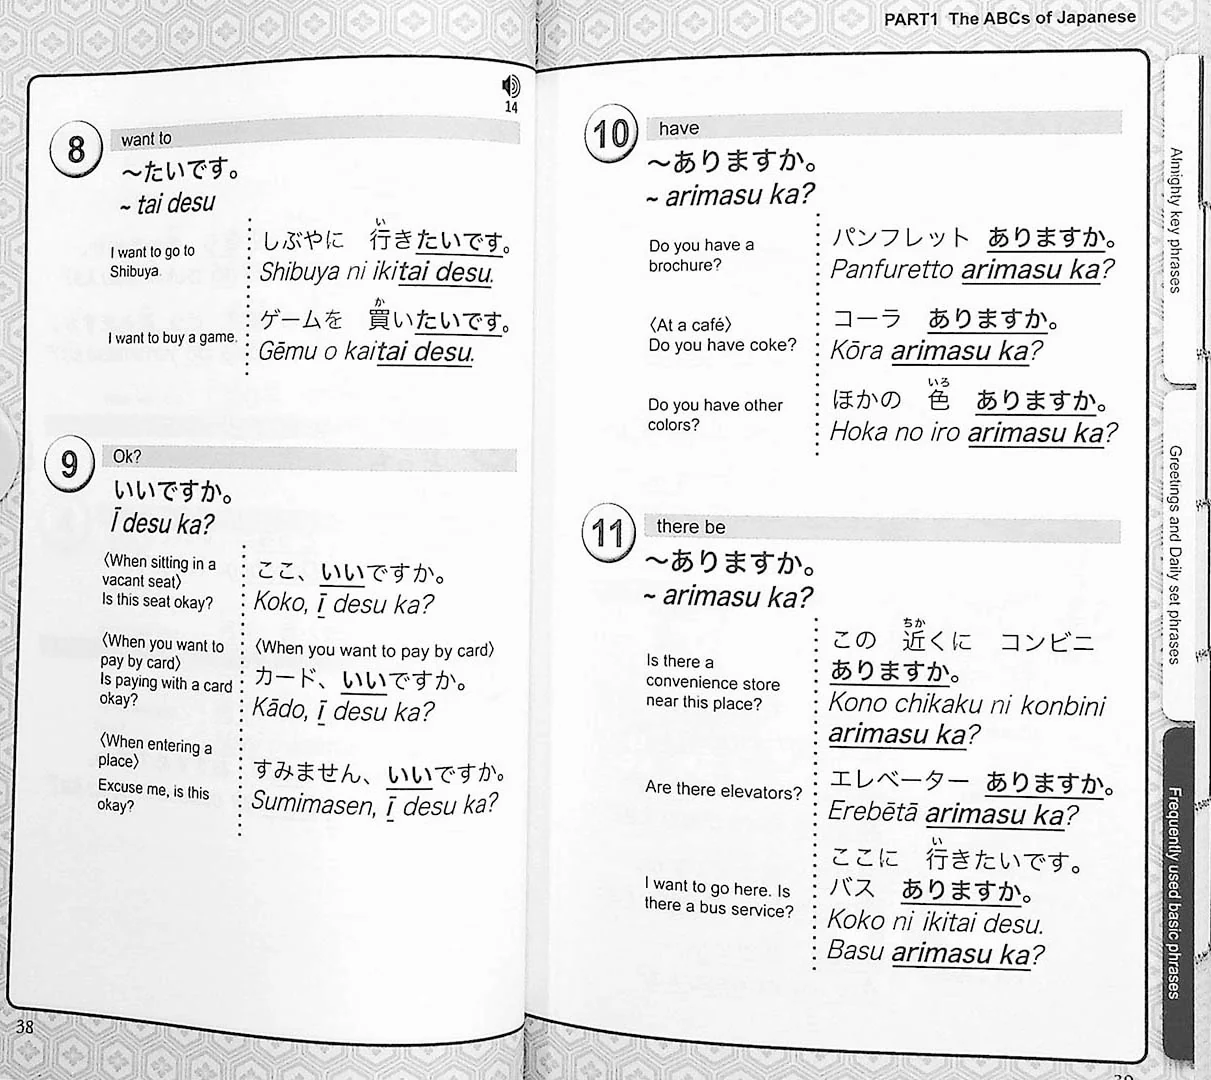 14
8
want to
～たいです。
~ tai desu
I want to go to
Shibuya.
しぶやに　行きたいです。
い
Shibuya ni ikitai desu.
I want to buy a game.
ゲームを　買いたいです。
か
Gēmu o kaitai desu.
9
Ok?
いいですか。
Ī desu ka?
〈When sitting in a
vacant seat〉
Is this seat okay?
ここ、いいですか。
Koko, ī desu ka?
〈When you want to
pay by card〉
Is paying with a card
okay?
〈When you want to pay by card〉
カード、いいですか。
Kādo, ī desu ka?
〈When entering a
place〉
Excuse me, is this
okay?
すみません、いいですか。
Sumimasen, ī desu ka?
38
PART1 The ABCs of Japanese
10
have
～ありますか。
~ arimasu ka?
Do you have a
brochure?
パンフレット　ありますか。
Panfuretto arimasu ka?
〈At a café〉
Do you have coke?
コーラ　ありますか。
Kōra arimasu ka?
Do you have other
colors?
いろ
ほかの　色　ありますか。
Hoka no iro arimasu ka?
11
there be
～ありますか。
~ arimasu ka?
Is there a
convenience store
near this place?
ちか
この　近くに　コンビニ
ありますか。
Kono chikaku ni konbini
arimasu ka?
Are there elevators?
エレベーター　ありますか。
Erebētā arimasu ka?
I want to go here. Is
there a bus service?
い
ここに　行きたいです。
バス　ありますか。
Koko ni ikitai desu.
Basu arimasu ka?
Almighty key phrases
Greetings and Daily set phrases
Frequently used basic phrases